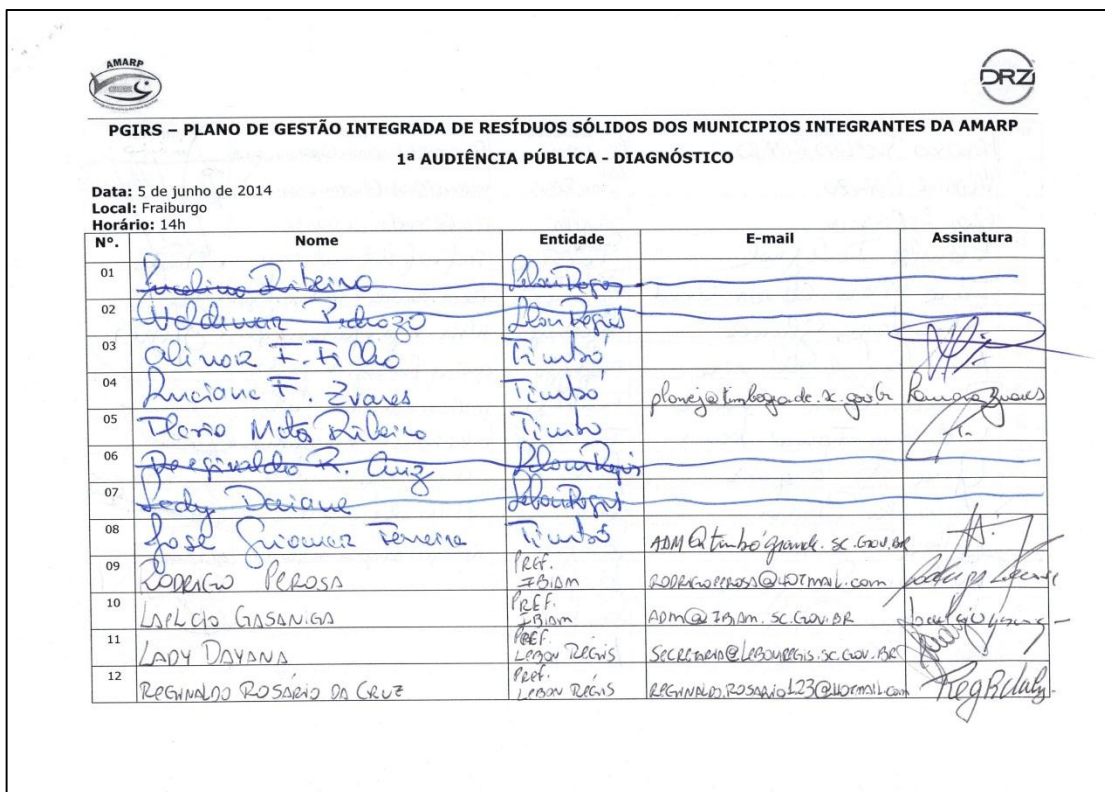 AMARP
DRZ
PGIRS – PLANO DE GESTÃO INTEGRADA DE RESÍDUOS SÓLIDOS DOS MUNICIPIOS INTEGRANTES DA AMARP
1ª AUDIÊNCIA PÚBLICA - DIAGNÓSTICO
Data: 5 de junho de 2014
Local: Fraiburgo
Horário: 14h
Nº. Nome Entidade E-mail Assinatura
01 Ribeiro Lebon Regis
02 Valdemar Pedrozo Lebon Regis
03 Alinor F. Filho Timbó
04 Luciane F. Zvares Timbó
05 Mota Ribeiro Timbo
06 Reginaldo R. Cruz Lebon Regis
07 Ledy Daiane Lebon Regis
08 José Ferreira Timbó ADM@timbógrande.sc.gov.br
09 RODRIGO PEROSA PREF. IBIAM RODRIGOPEROSA@HOTMAIL.com
10 GASANIGA PREF. IBIAM ADM@IBIAM.SC.GOV.BR
11 LADY DAYANA PREF. LEBON REGIS SECRETARIA@LEBONREGIS.SC.GOV.BR
12 REGINALDO ROSÁRIO DA CRUZ PREF. LEBON REGIS REGINALDO.ROSARIO123@HOTMAIL.com